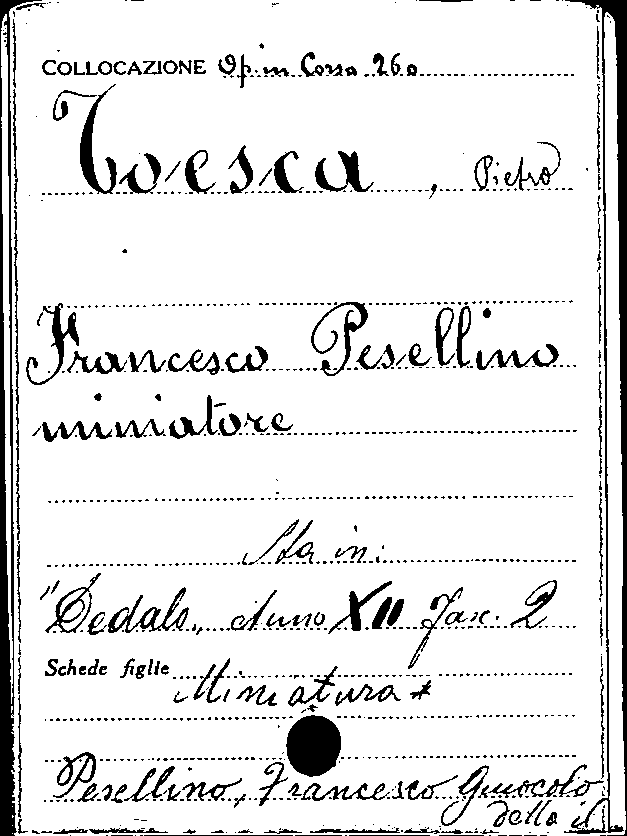 COLLOCAZIONE Op. in Corso 260
Toesca, Pietro
Francesco Pesellino
miniatore
Sta in:
"Dedalo„ Anno XII Fasc. 2
Schede figlie
Miniatura *
Pesellino, Francesco
detto il